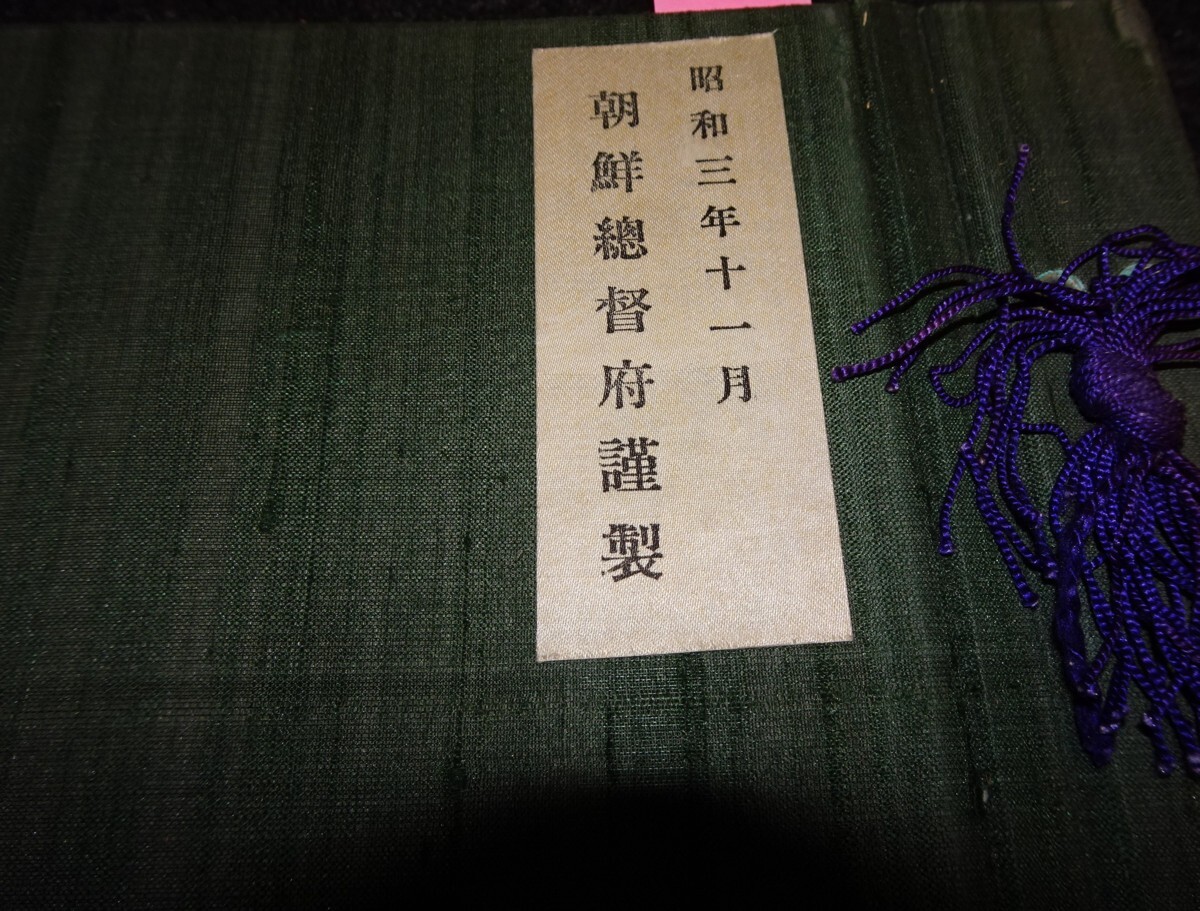 昭和三年十一月
朝鮮總督府謹製